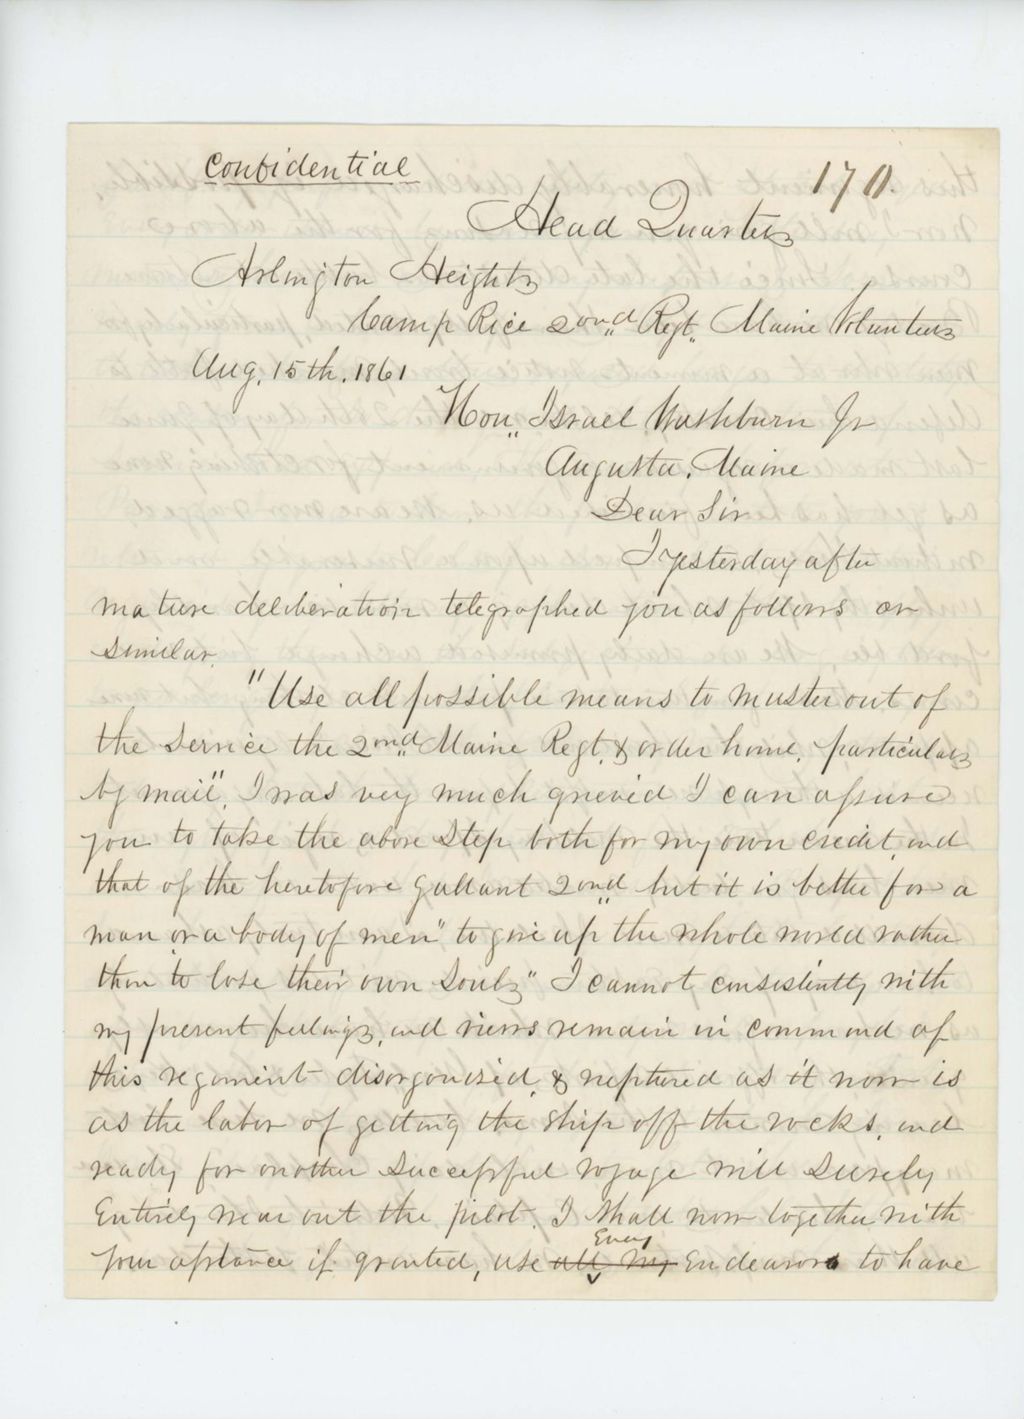 Confidential
170.
Head Quarters
Arlington Heights
Camp Rice 2ond Regt. Maine Volunteers
Aug. 15th. 1861
Hon. Israel Washburn Jr
Augusta, Maine
Dear Sir
I yesterday after
mature deliberation telegraphed you as follows or
similar.
"Use all possible means to muster out of
the service the 2ond Maine Regt. & order home, particulars
by mail". I was very much grieved I can assure
you to take the above step both for my own credit, and
that of the heretofore gallant 2ond but it is better for a
man or a body of men "to give up the whole world rather
than to lose their own souls" I cannot consistently with
my present feelings, and views remain in command of
this regiment disorganized, & ruptured as it now is
as the labor of getting the ship off the rocks, and
ready for another successful voyage will surely
Entirely wear out the pilot. I shall now together with
Every
your asstance if granted, use all my Endeavors to have